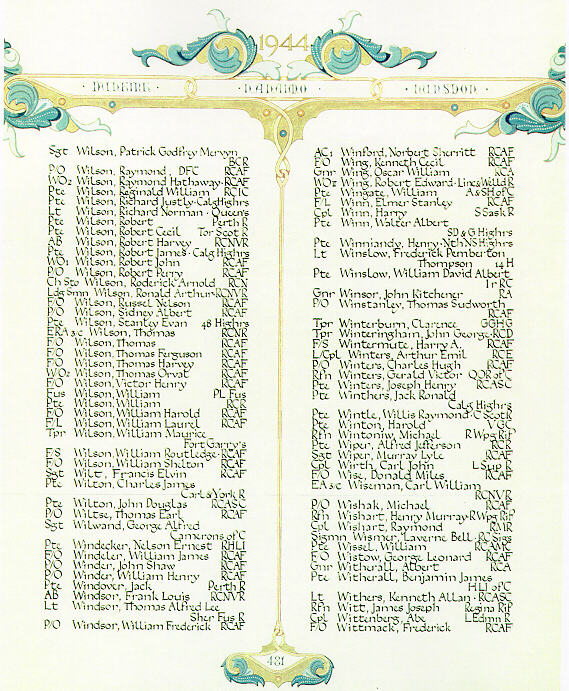 1944
Sgt Wilson, Patrick Godfrey Mervyn
BCR
P/O Wilson, Raymond, DFC RCAF
WO2 Wilson, Raymond Hathaway RCAF
Pte Wilson, Reginald William RCIC
Pte Wilson, Richard Justly Calg Highrs
Lt Wilson, Richard Norman Queen's
Pte Wilson, Robert Perth R
Pte Wilson, Robert Cecil Tor Scot R
AB Wilson, Robert Harvey RCNVR
Pte Wilson, Robert James Calg Highrs
WO1 Wilson, Robert John RCAF
P/O Wilson, Robert Perry RCAF
Ch Sto Wilson, Roderick Arnold RCN
Ldg Smn Wilson, Ronald Arthur RCNVR
F/O Wilson, Russel Nelson RCAF
P/O Wilson, Sidney Albert RCAF
Pte Wilson, Stanley Evan 48 Highrs
ERA 3c Wilson, Thomas RCNR
F/O Wilson, Thomas RCAF
F/O Wilson, Thomas Ferguson RCAF
F/O Wilson, Thomas Harvey RCAF
WO2 Wilson, Thomas Orval RCAF
F/O Wilson, Victor Henry RCAF
Fus Wilson, William PL Fus
Pte Wilson, William RCR
F/O Wilson, William Harold RCAF
F/L Wilson, William Laurel RCAF
Tpr Wilson, William Maurice
Fort Garry's
F/S Wilson, William Routledge RCAF
F/O Wilson, William Shelton RCAF
Sgt Wilt, Francis Elvin RCAF
Pte Wilton, Charles James
Carl & York R
Pte Wilton, John Douglas RCASC
P/O Wiltse, Thomas Earl RCAF
Sgt Wilwand, George Alfred
Camerons of C
Pte Windecker, Nelson Ernest RHLI
F/O Windeler, William James RCAF
P/O Winder, John Shaw RCAF
P/O Winder, William Henry RCAF
Pte Windover, Jack Perth R
AB Windsor, Frank Louis RCNVR
Lt Windsor, Thomas Alfred Lee
Sher Fus R
P/O Windsor, William Frederick RCAF
AC1 Winford, Norbert Sherritt RCAF
F/O Wing, Kenneth Cecil RCAF
Gnr Wing, Oscar William RCA
WO2 Wing, Robert Edward Lincs Welld R
Pte Wingate, William A & SH of C
F/L Winn, Elmer Stanley RCAF
Cpl Winn, Harry S Sask R
Pte Winn, Walter Albert
SD & G Highrs
Pte Winniandy, Henry Nth NS Highrs
Lt Winslow, Frederick Pemberton
Thompson 14 H
Pte Winslow, William David Albert
Ir RC
Gnr Winsor, John Kitchener RA
P/O Winstanley, Thomas Sudworth
RCAF
Tpr Winterburn, Clarence GGHG
Tpr Winteringham, John George RCD
F/S Winternute, Harry A. RCAF
L/Cpl Winters, Arthur Emil RCE
P/O Winters, Charles Hugh RCAF
Rfn Winters, Gerald Victor QOR of C
Pte Winters, Joseph Henry RCASC
Pte Winthers, Jack Ronald
Calg Highrs
Pte Wintle, Willis Raymond C Scot R
Pte Winton, Harold VGC
Rfn Wintoniw, Michael R Wpg Rif
Pte Wiper, Alfred Jefferson RCR
Sgt Wiper, Murray Lyle RCAF
Cpl Wirth, Carl John L Sup R
F/O Wise, Donald Miles RCAF
EA 3c Wiseman, Carl William
RCNVR
P/O Wishak, Michael RCAF
Rfn Wishart, Henry Murray R Wpg Rif
Cpl Wishart, Raymond RMR
Sigmn Wismer, Laverne Bell RC Sigs
Pte Wissel, William RCAMC
F/O Wistow, George Leonard RCAF
Gnr Witherall, Albert RCA
Pte Witherall, Benjamin James
HLI of C
Lt Withers, Kenneth Allan RCASC
Rfn Witt, James Joseph Regina Rif
Cpl Wittenberg, Abe L Edmn R
F/O Wittmack, Frederick RCAF
481